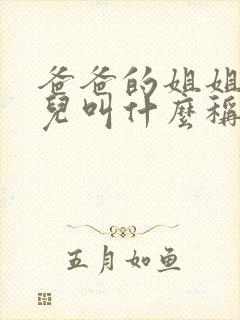 爸爸的姐姐
兒叫什麼稱
五月如鱼